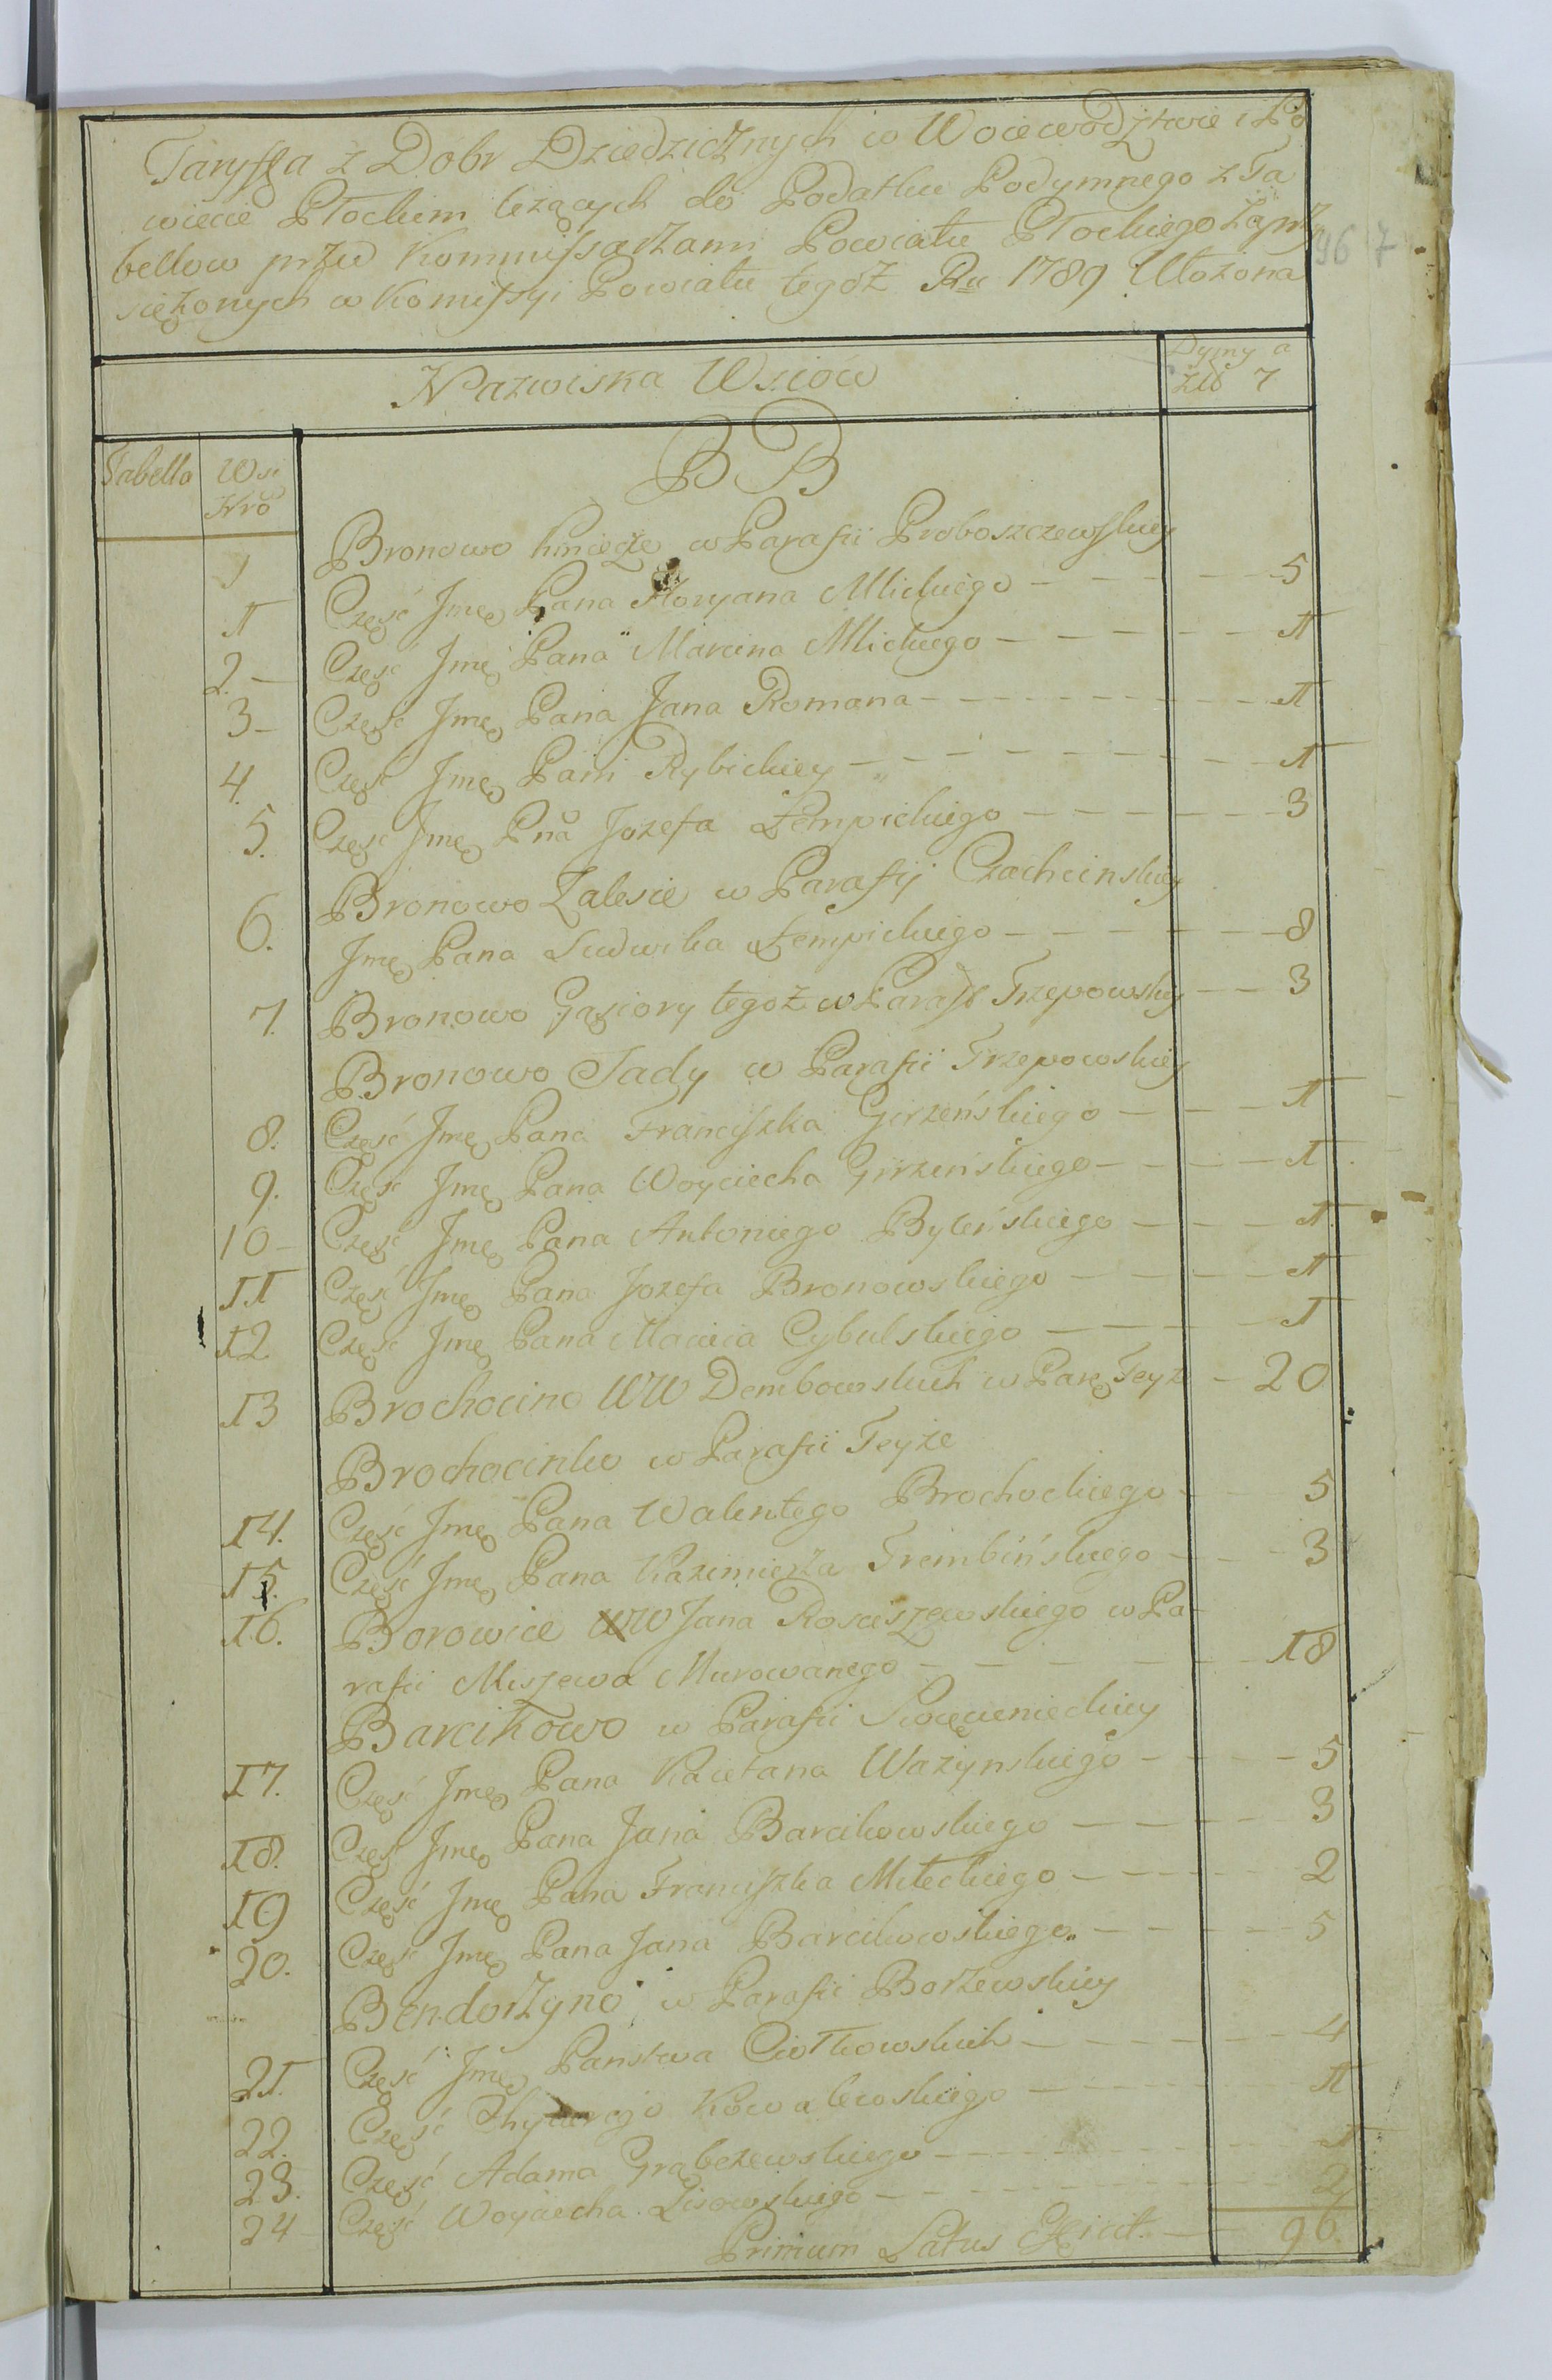 Taryffa z Dobr Dziedzicznych w Woiewodztwie i Po
wiecie Płockim leżących do Podatku Podymnego z Ta
bellow przed Kommissarzami Powiatu Płockiego zaprzy
siężonych w Komissyi Powiatu tegoż Ru 1789 Ułożona
Nazwiska Wsiów
Dymy a
zło 7
Tabella Wsi
Nro
BB
1 Bronowo Kmiece w Parafii Proboszczewskiey
1 Część Jmę Pana Floryana Mlickiego 5
2 Część Jmę Pana Marcina Mlickiego 1
3 Część Jmę Pana Jana Romana 1
4. Część Jmę Pani Rybickiey 1
5. Część Jmę Pna Jozefa Łempickiego 3
6. Bronowo Zalesie w Parafij Czachcinskiey
Jmę Pana Ludwika Łempickiego 8
7. Bronowo Gąsiory tegoż w Paraf Trzepowskiey 3
Bronowo Sady w Parafii Trzepowskiey
8. Część Jmę Pana Franciszka Girzeńskiego 1
9. Część Jmę Pana Woyciecha Girzeńskiego 1
10 Część Jmę Pana Antoniego Byleńskiego 1
11 Część Jmę Pana Jozefa Bronowskiego 1
12 Część Jmę Pana Macieia Cybulskiego 1
13 Brochocino WW Dembowskich w Parę Teyż 20
Brochocinko w Parafii Teyże
14. Część Jmę Pana Walentego Brochockiego 5
15. Część Jmę Pana Kazimierza Trembińskiego 3
16. Borowice WW Jana Rosciszewskiego w Pa-
rafii Miszewa Murowanego 18
Barcikowo w Parafii Swięcienieckiey
17. Część Jmę Pana Kaietana Ważynskiego 5
18. Część Jmę Pana Jana Barcikowskiego 3
19 Część Jmę Pana Franciszka Mileckiego 2
20. Część Jmę Pana Jana Barcikowskiego 5
Bendorzyno w Parafii Borzewskiey
21. Część Jmę Panstwa Ciołkowskich 4
22. Część Kowalewskiego 1
23. Część Adama Grąbczewskiego 1
24 Część Woyciecha Lisowskiego 2
Primum Latus Efficit 96.
96 7